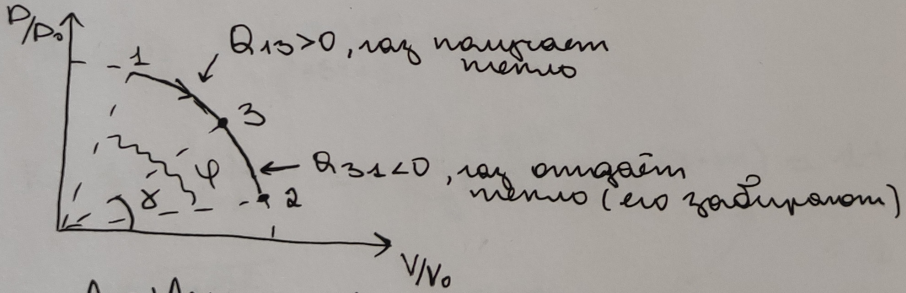 P/P₀
1
Q₁₃>0, газ получает
тепло
3
Q₃₁<0, газ отдаёт
тепло (его забирают)
φ
γ
2
V/V₀